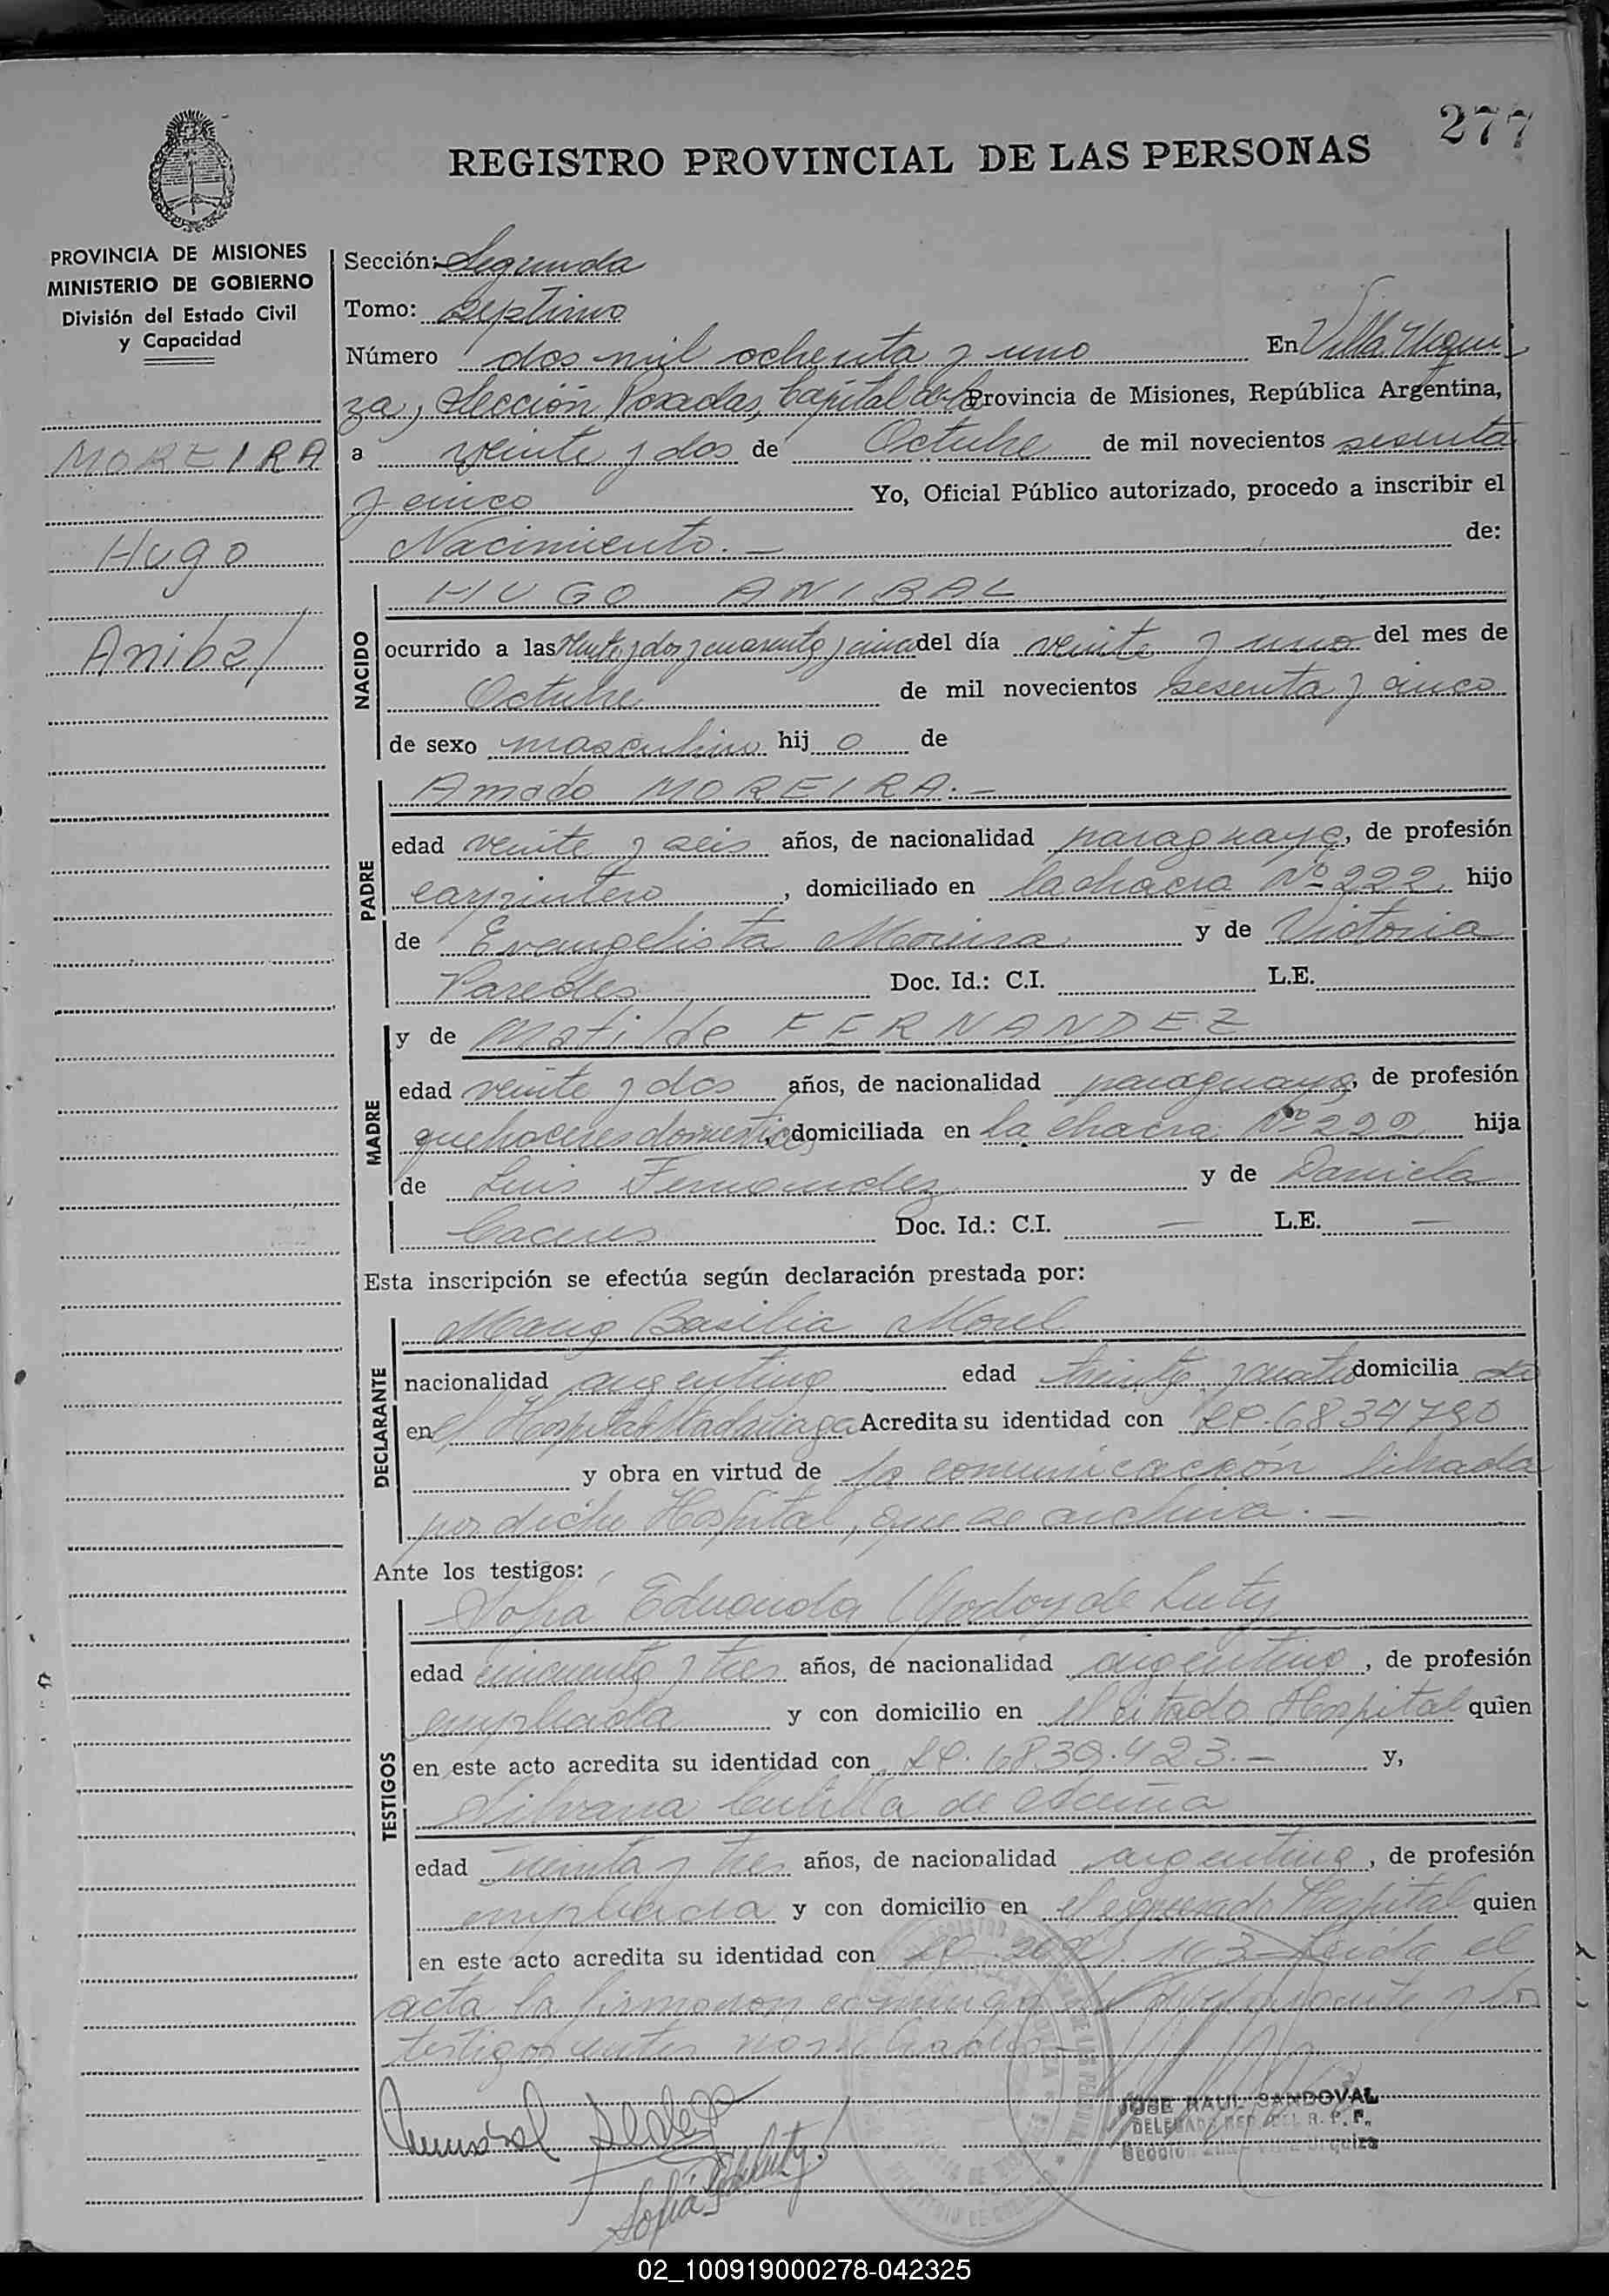 277
REGISTRO PROVINCIAL DE LAS PERSONAS
PROVINCIA DE MISIONES
MINISTERIO DE GOBIERNO
División del Estado Civil
y Capacidad
MOREIRA
Hugo
Anibal
Sección: Segunda
Tomo: Septimo
Número dos mil ochenta y uno En Villa Urqui
za, Sección Posadas, Capital de la Provincia de Misiones, República Argentina,
a veinte y dos de Octubre de mil novecientos sesenta
y cinco Yo, Oficial Público autorizado, procedo a inscribir el
Nacimiento.- de:
NACIDO
HUGO ANIBAL
ocurrido a las veinte y dos y cuarenta y cinco del día veinte y uno del mes de
Octubre de mil novecientos sesenta y cinco
de sexo masculino hij o de
PADRE
Amado MOREIRA.-
edad veinte y seis años, de nacionalidad paraguaya, de profesión
carpintero, domiciliado en la chacra Nº 222 hijo
de Evangelista Moreira y de Victoria
Paredes Doc. Id.: C.I. L.E.
MADRE
y de Matilde FERNANDEZ
edad veinte y dos años, de nacionalidad paraguaya, de profesión
quehaceres domesticos, domiciliada en la chacra Nº 222 hija
de Luis Fernandez y de Daniela
Doc. Id.: C.I. — L.E. —
Esta inscripción se efectúa según declaración prestada por:
DECLARANTE
Basilia Morel
nacionalidad argentina edad treinta y cuatro domicilia da
en el Hospital Madariaga Acredita su identidad con
y obra en virtud de la comunicación librada
por dicho Hospital, que se archiva.-
Ante los testigos:
TESTIGOS
Sofia Eduarda Godoy de Luty
edad cincuenta y tres años, de nacionalidad argentina, de profesión
empleada y con domicilio en el citado Hospital quien
en este acto acredita su identidad con 6.839.423.- y,
Silvana de
edad treinta y tres años, de nacionalidad argentina, de profesión
empleada y con domicilio en el expresado Hospital quien
en este acto acredita su identidad con Leida el
acta la firmaron conmigo la declarante y los
testigos antes nombrados
JOSE RAUL SANDOVAL
02_100919000278-042325